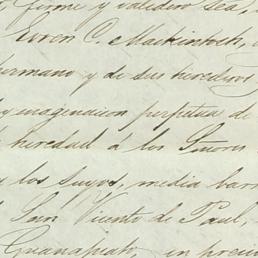 firme y validero sea,
Ewen C. Mackintosh,
hermano y de sus herederos
y enagenacion perpetua de
heredad á los Señores
y los suyos, media barra
San Vicente de Paul,
Guanajuato, en precio